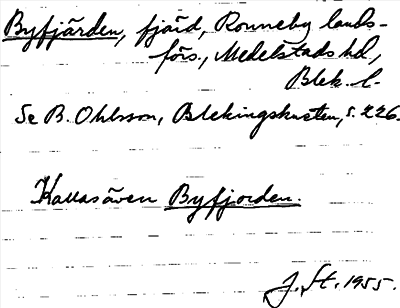 Byfjärden, fjärd, Ronneby lands-
förs., Medelstads hd,
Blek. l.
Se B. Ohlsson, Blekingskusten, s. 226.
Kallas även Byfjorden.
J. St. 1955.